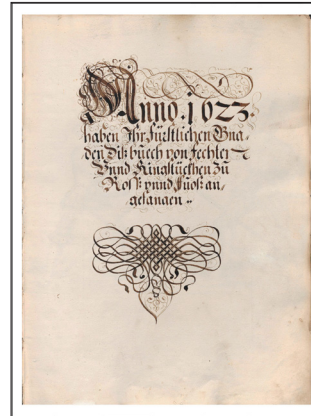 Anno .1623.
haben Ihr Fürstlichen Gna,
den diß buech von fechter
Vnnd Ringstuckhen zu
Roß vnnd Fuoß an,
gefangen ..